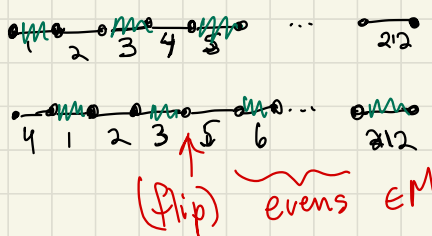 1 2 3 4 5 ... 212
4 1 2 3 5 6 ... 212
(flip) evens ∈ M